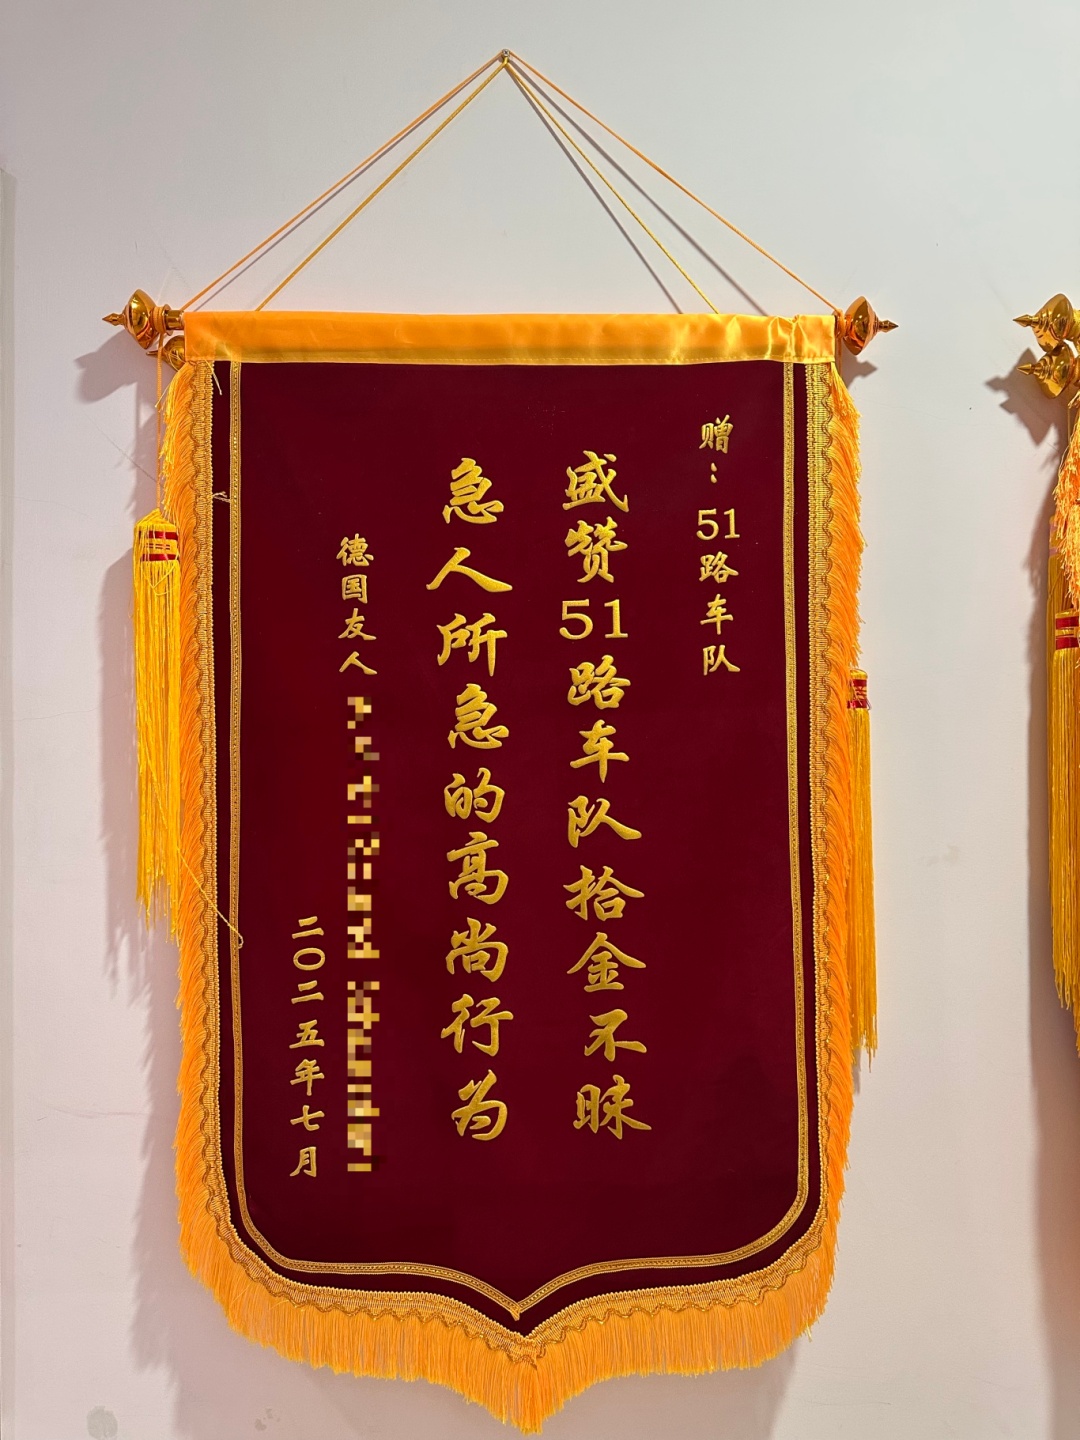 赠：51路车队
盛赞51路车队拾金不昧
急人所急的高尚行为
德国友人
二〇二五年七月